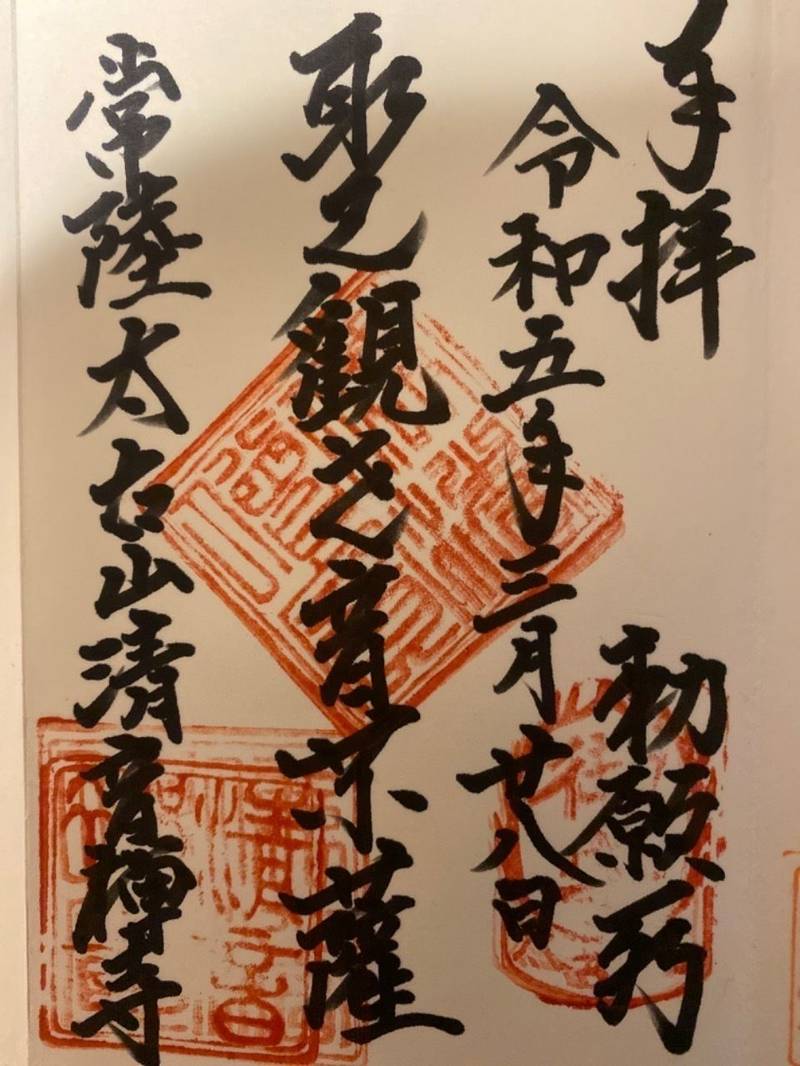 奉拝
勅願所
令和五年三月廿八日
聖觀世音菩薩
常陸太古山清音禅寺